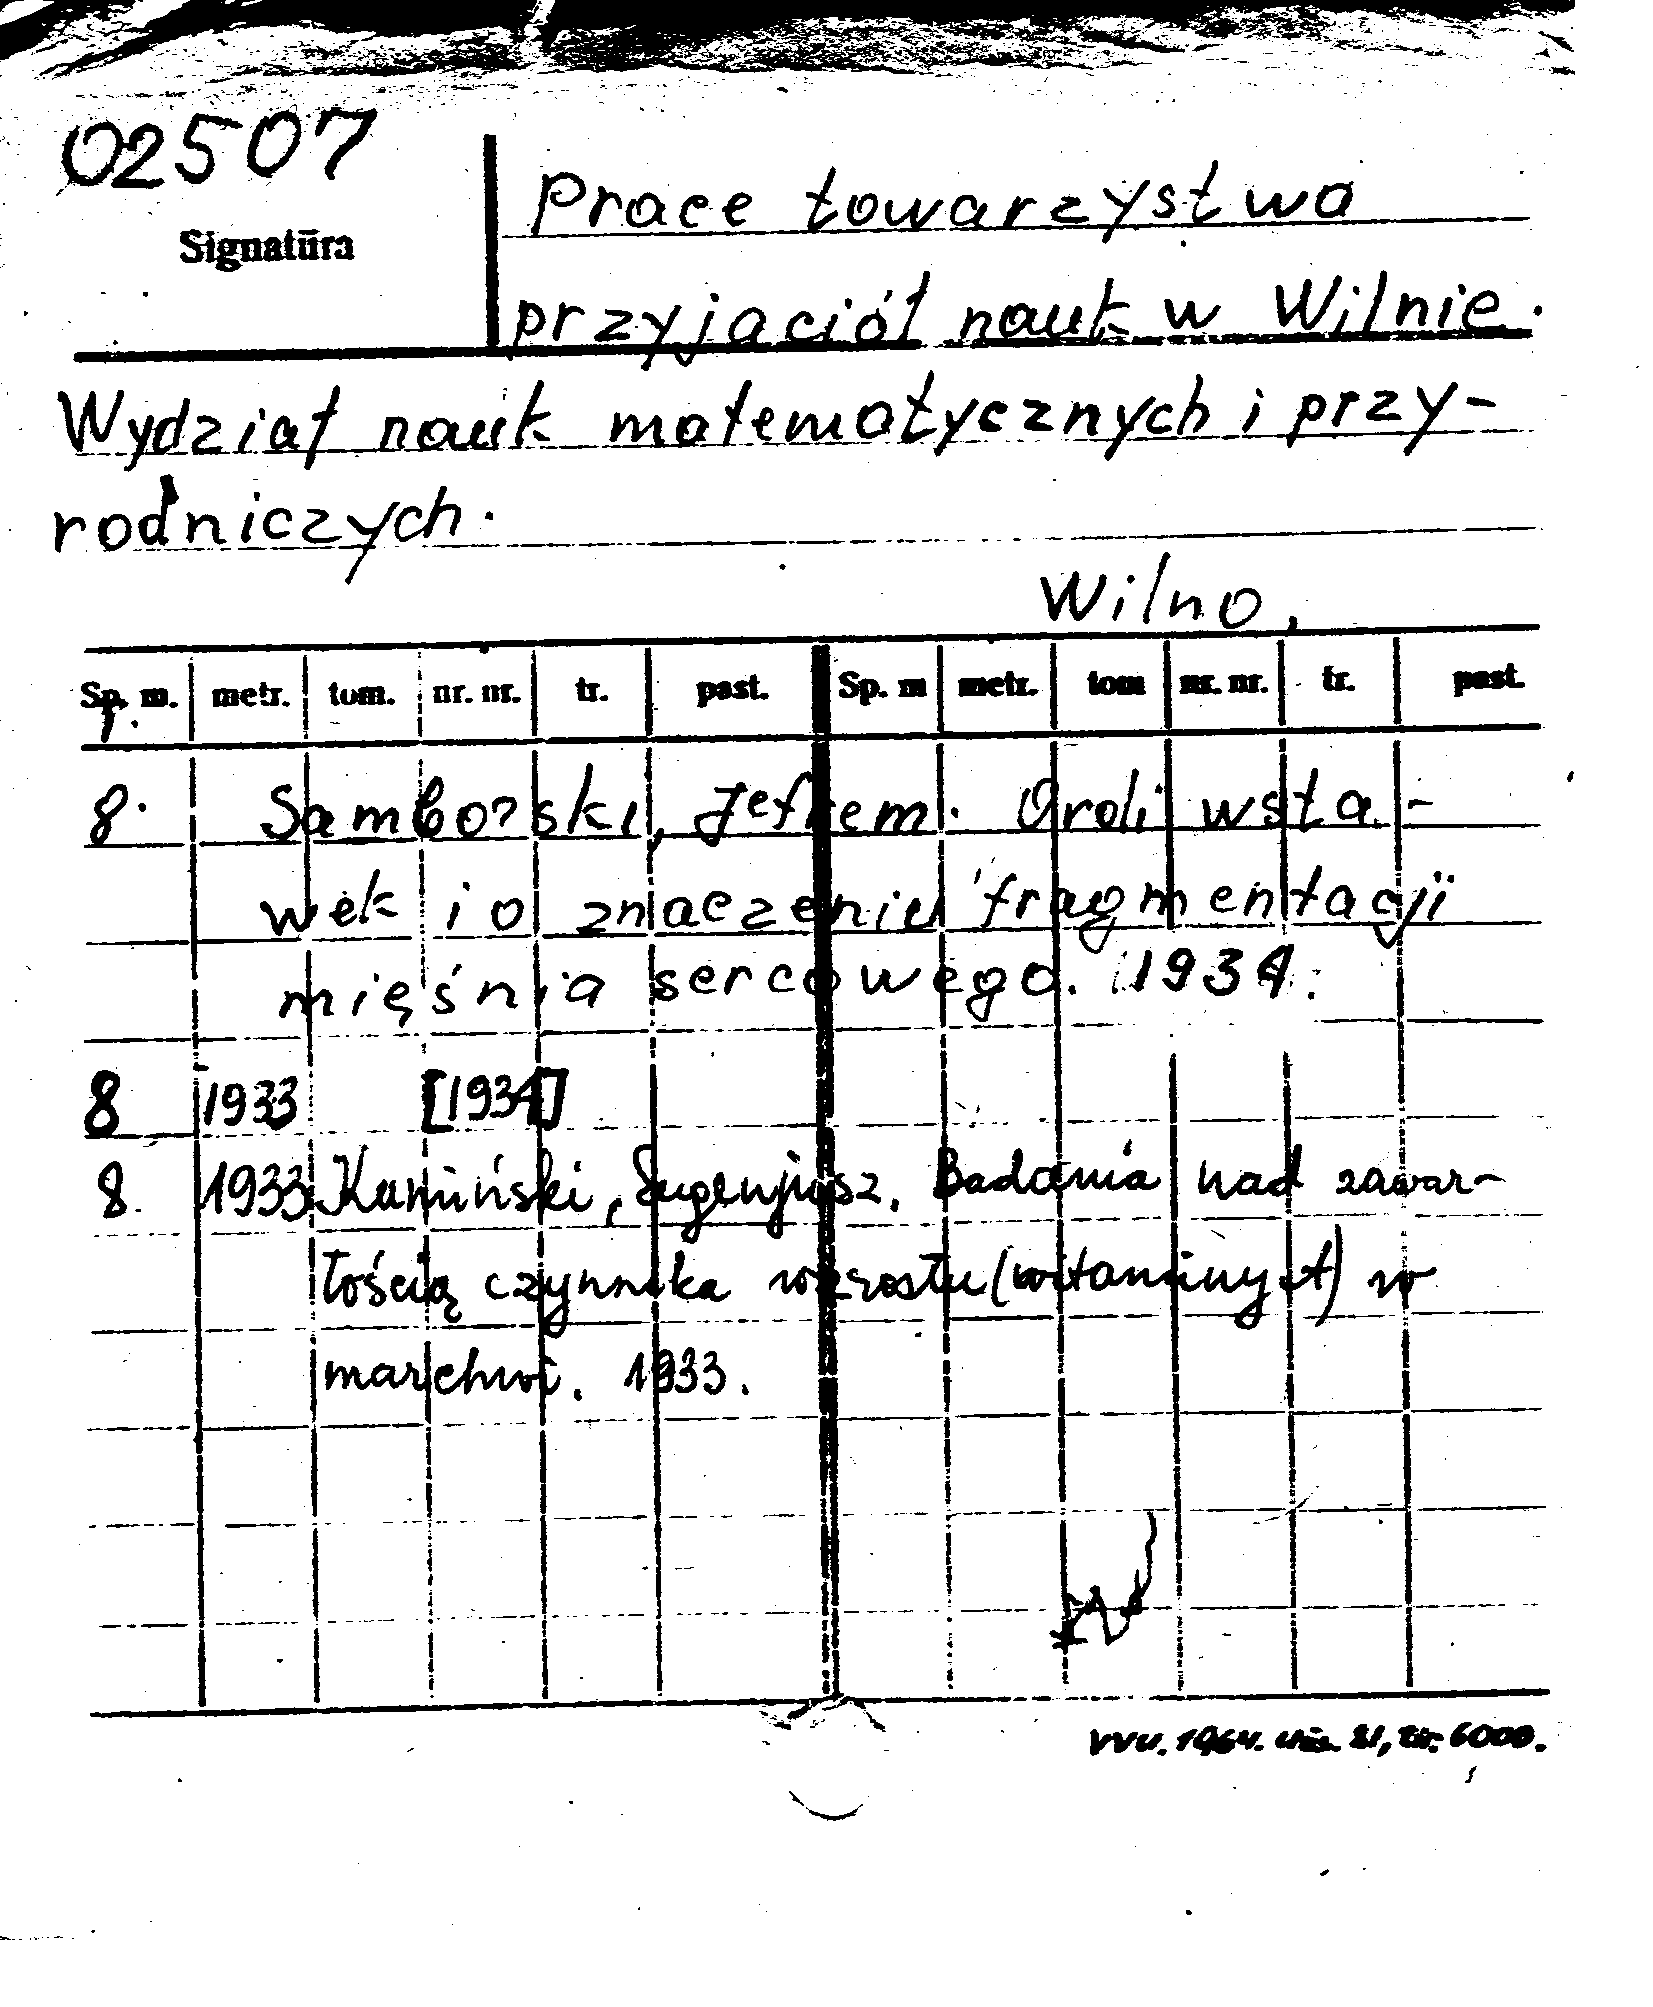 02507
Signatūra
Prace towarzystwa
przyjaciół nauk w Wilnie.
Wydział nauk matematycznych i przy-
rodniczych.
Wilno,
Sp. m. metr. tom. nr. nr. tr. past. Sp. m metr. tom nr. nr. tr. past.
8. Samborski, Jefrem. O roli wsta-
wek i o znaczeniu fragmentacji
mięśnia sercowego. 1934.
8 1933 [1934]
8. 1933 Kamiński, Eugenjusz. Badania nad zawar-
tością czynnika wzrostu (witaminy A) w
marchwi. 1933.
VVU. 1964. 21, 6000.